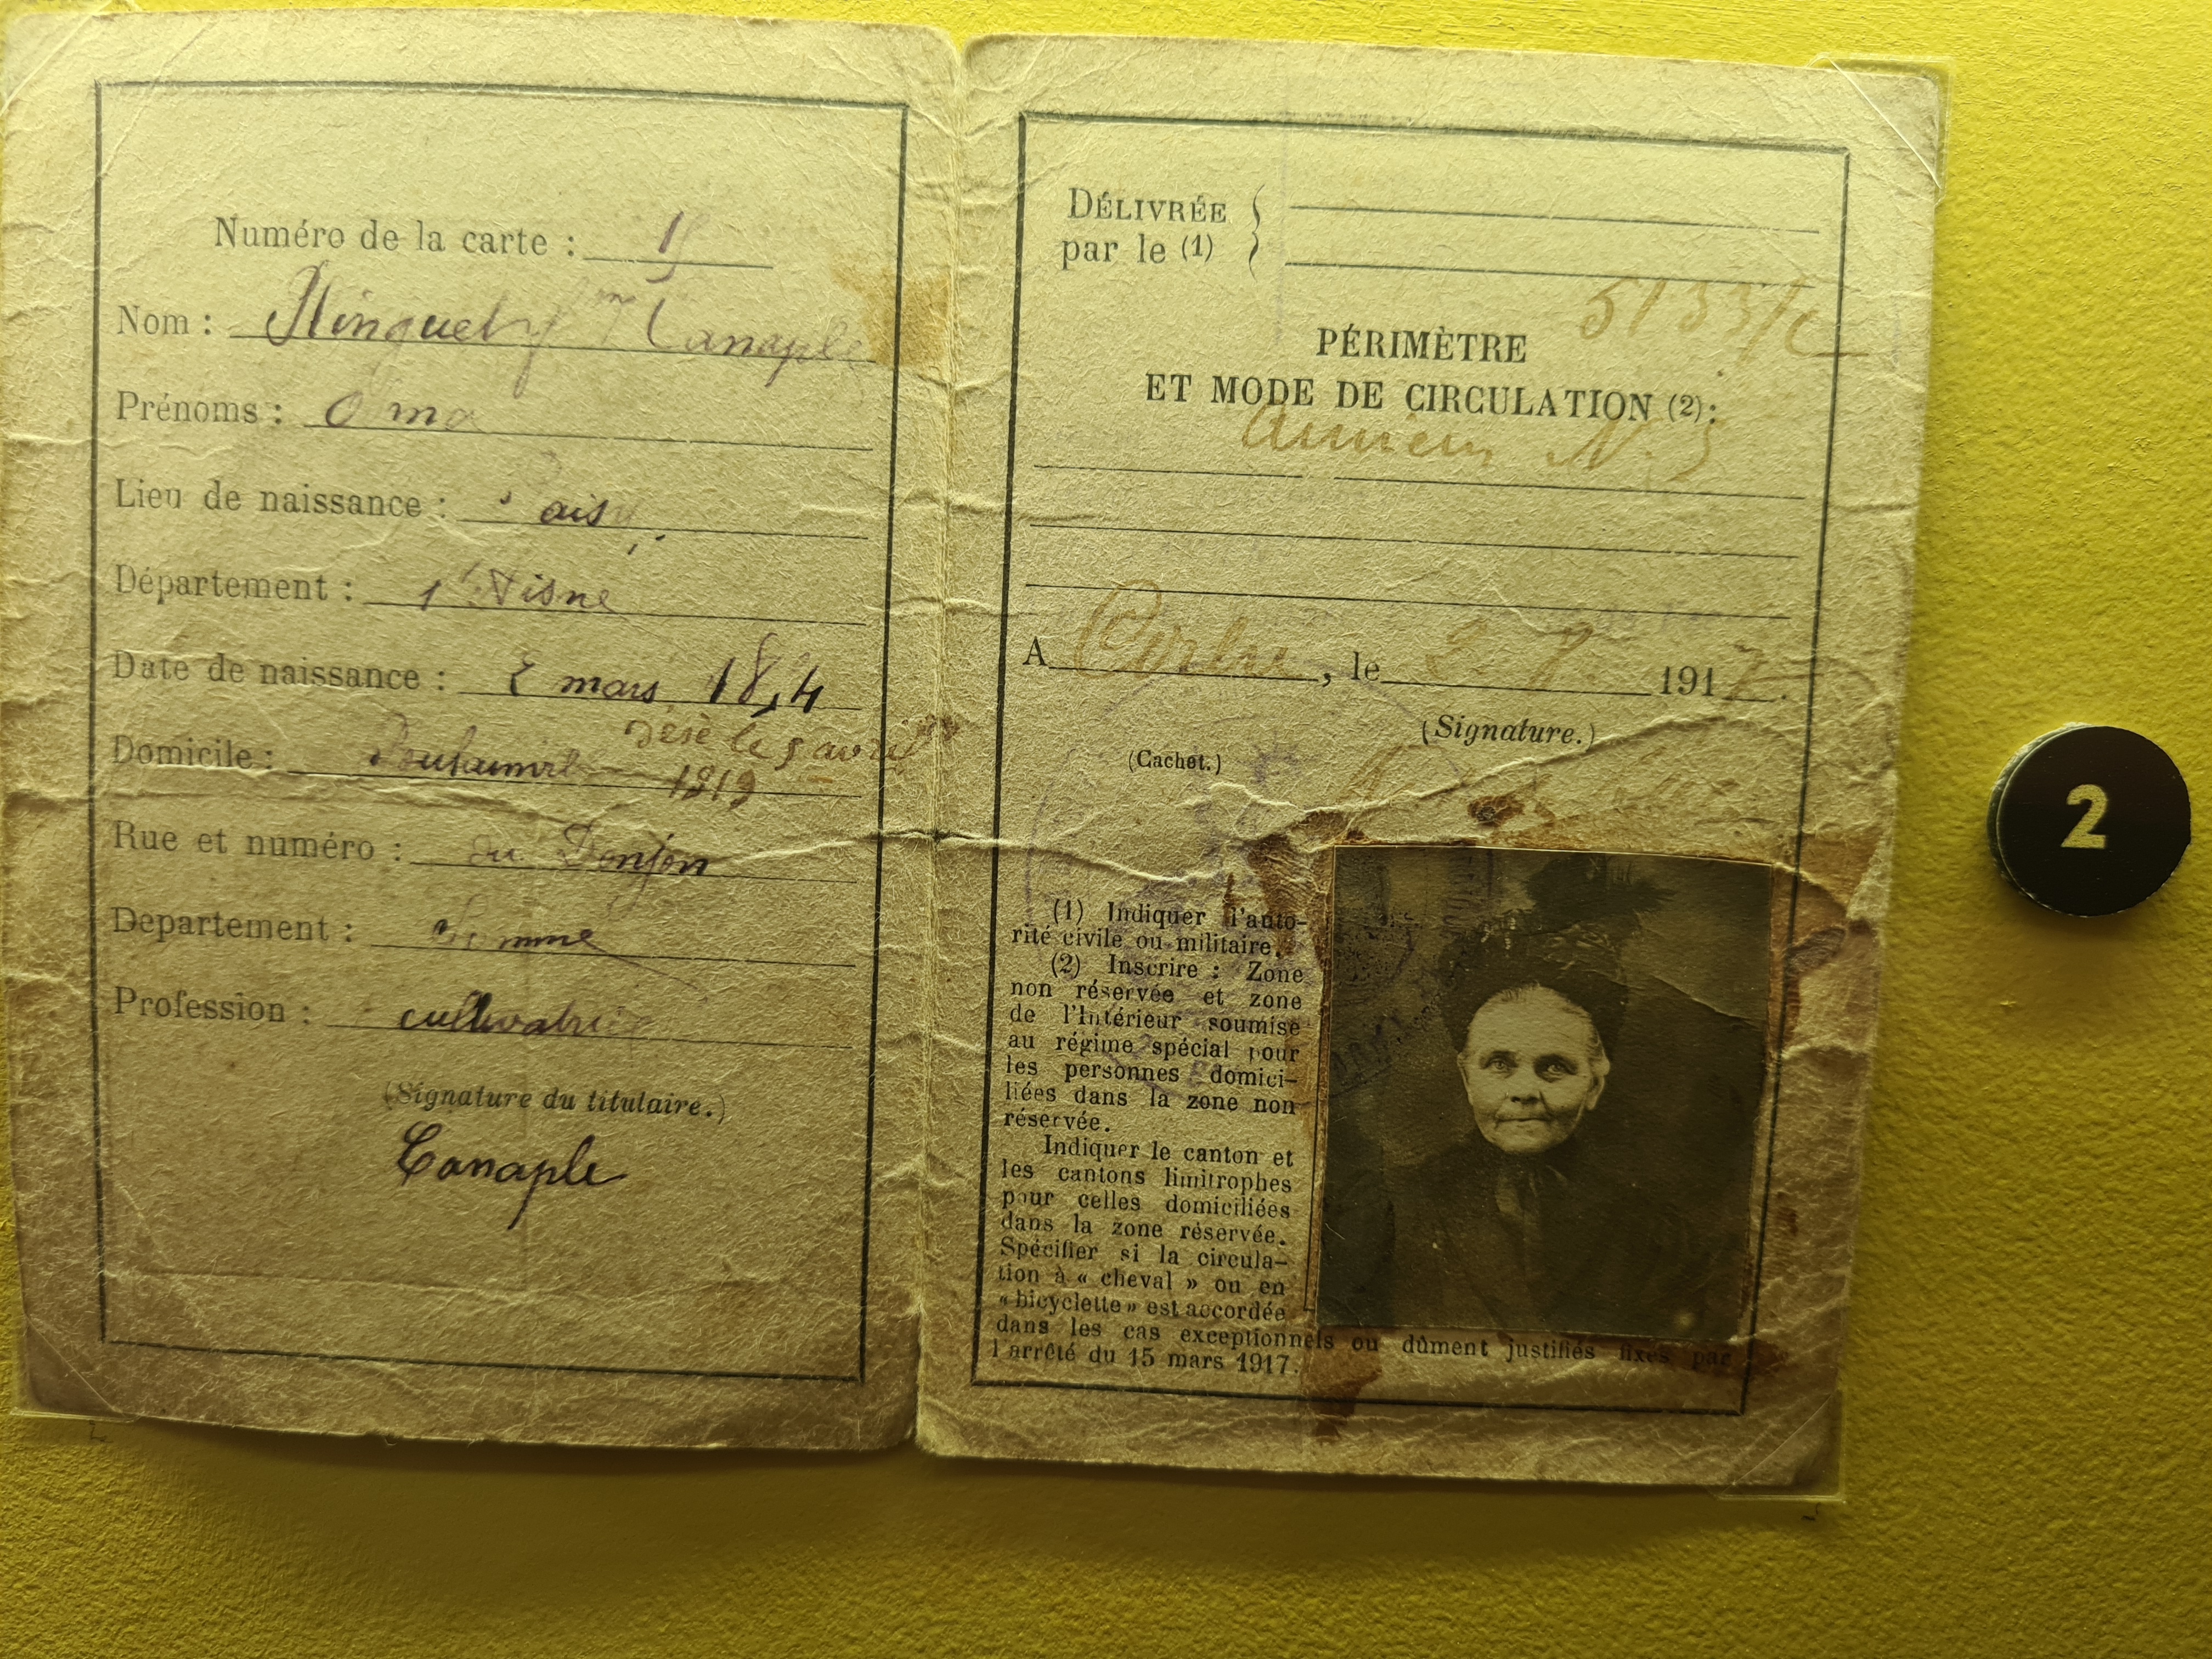 Numéro de la carte :
Nom : Canaple
Prénoms :
Lieu de naissance :
Département : l'Aisne
Date de naissance : mars
Domicile :
le 5 avril
1919
Rue et numéro : du Donjon
Departement : Somme
Profession : cultivatrice
(Signature du titulaire.)
Canaple
DÉLIVRÉE
par le (1)
PÉRIMÈTRE
ET MODE DE CIRCULATION (2):
Amiens N.
A , le 1917.
(Signature.)
(Cachet.)
(1) Indiquer l'auto-
rité civile ou militaire.
(2) Inscrire : Zone
non réservée et zone
de l'Intérieur soumise
au régime spécial pour
les personnes domici-
liées dans la zone non
réservée.
Indiquer le canton et
les cantons limitrophes
pour celles domiciliées
dans la zone réservée.
Spécifier si la circula-
tion à « cheval » ou en
« bicyclette » est accordée
dans les cas exceptionnels ou dûment justifiés fixés par
l'arrêté du 15 mars 1917.
2